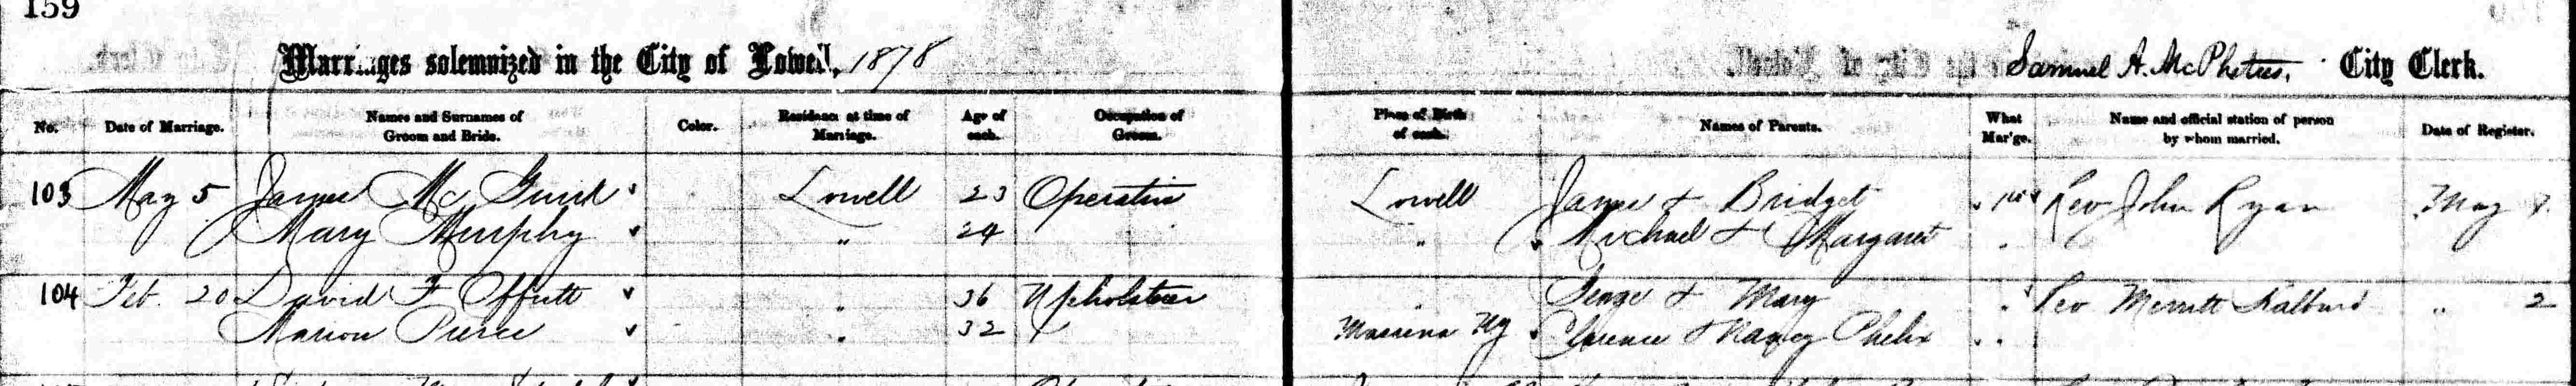 159
Marriages solemnized in the City of Lowell, 1878
Samuel A. McPhetres, City Clerk.
No. Date of Marriage. Names and Surnames of Groom and Bride. Color. Residence at time of Marriage. Age of each. Occupation of Groom. Place of Birth of each. Names of Parents. What Mar'ge. Name and official station of person by whom married. Date of Register.
103 May 5 James Mc Guirk Lowell 23 Operative Lowell James & Bridget 1st Rev John Ryan May 7.
Mary Murphy " 24 " Michael & Margaret "
104 Feb. 20 David F Offutt " 36 Upholsterer " George & Mary " Rev Merritt " 2
Marion Pierce " 32 Massena NY Clarence & Nancy Phelix "